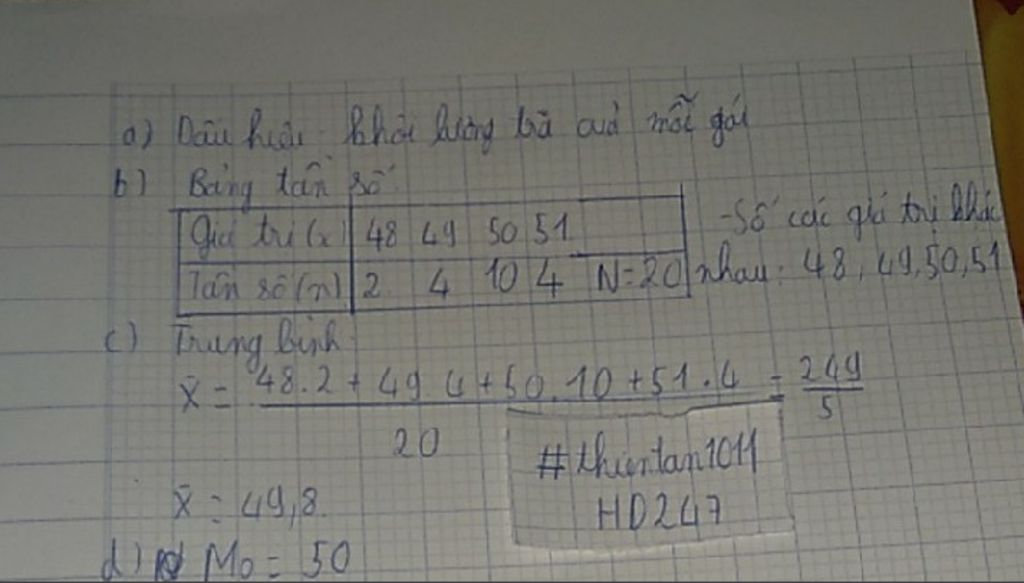 a) Dấu hiệu: khối lượng trà của mỗi gói
b) Bảng tần số
Giá trị (x) 48 49 50 51
Tần số (n) 2 4 10 4 N=20
-Số các giá trị khác
nhau: 48, 49, 50, 51
c) Trung bình
x̄ = 48.2 + 49 4 + 50.10 + 51.4 = 249
20 5
x̄ = 49,8.
#thientan1011
HD247
d) M₀ = 50